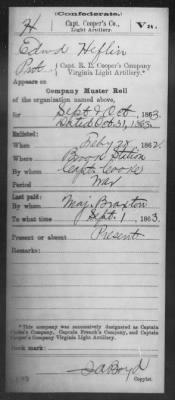 (Confederate.)
H Capt. Cooper's Co., Va.
Light Artillery.*
Edwd Heflin
Pvt., { Capt. R. L. Cooper's Company
Virginia Light Artillery.*
Appears on
Company Muster Roll
of the organization named above,
for Sept & Oct, 1863.
Dated Oct 31, 1863.
Enlisted:
When Feby 28, 1862.
Where Brook Station
By whom Capt. Cooke
Period War
Last paid:
By whom Maj. Braxton
To what time Sept. 1, 1863.
Present or absent Present
Remarks:
*This company was successively designated as Captain
Cooke's Company, Captain French's Company, and Captain
Cooper's Company Virginia Light Artillery.
Book mark:
Boyd
Copyist.